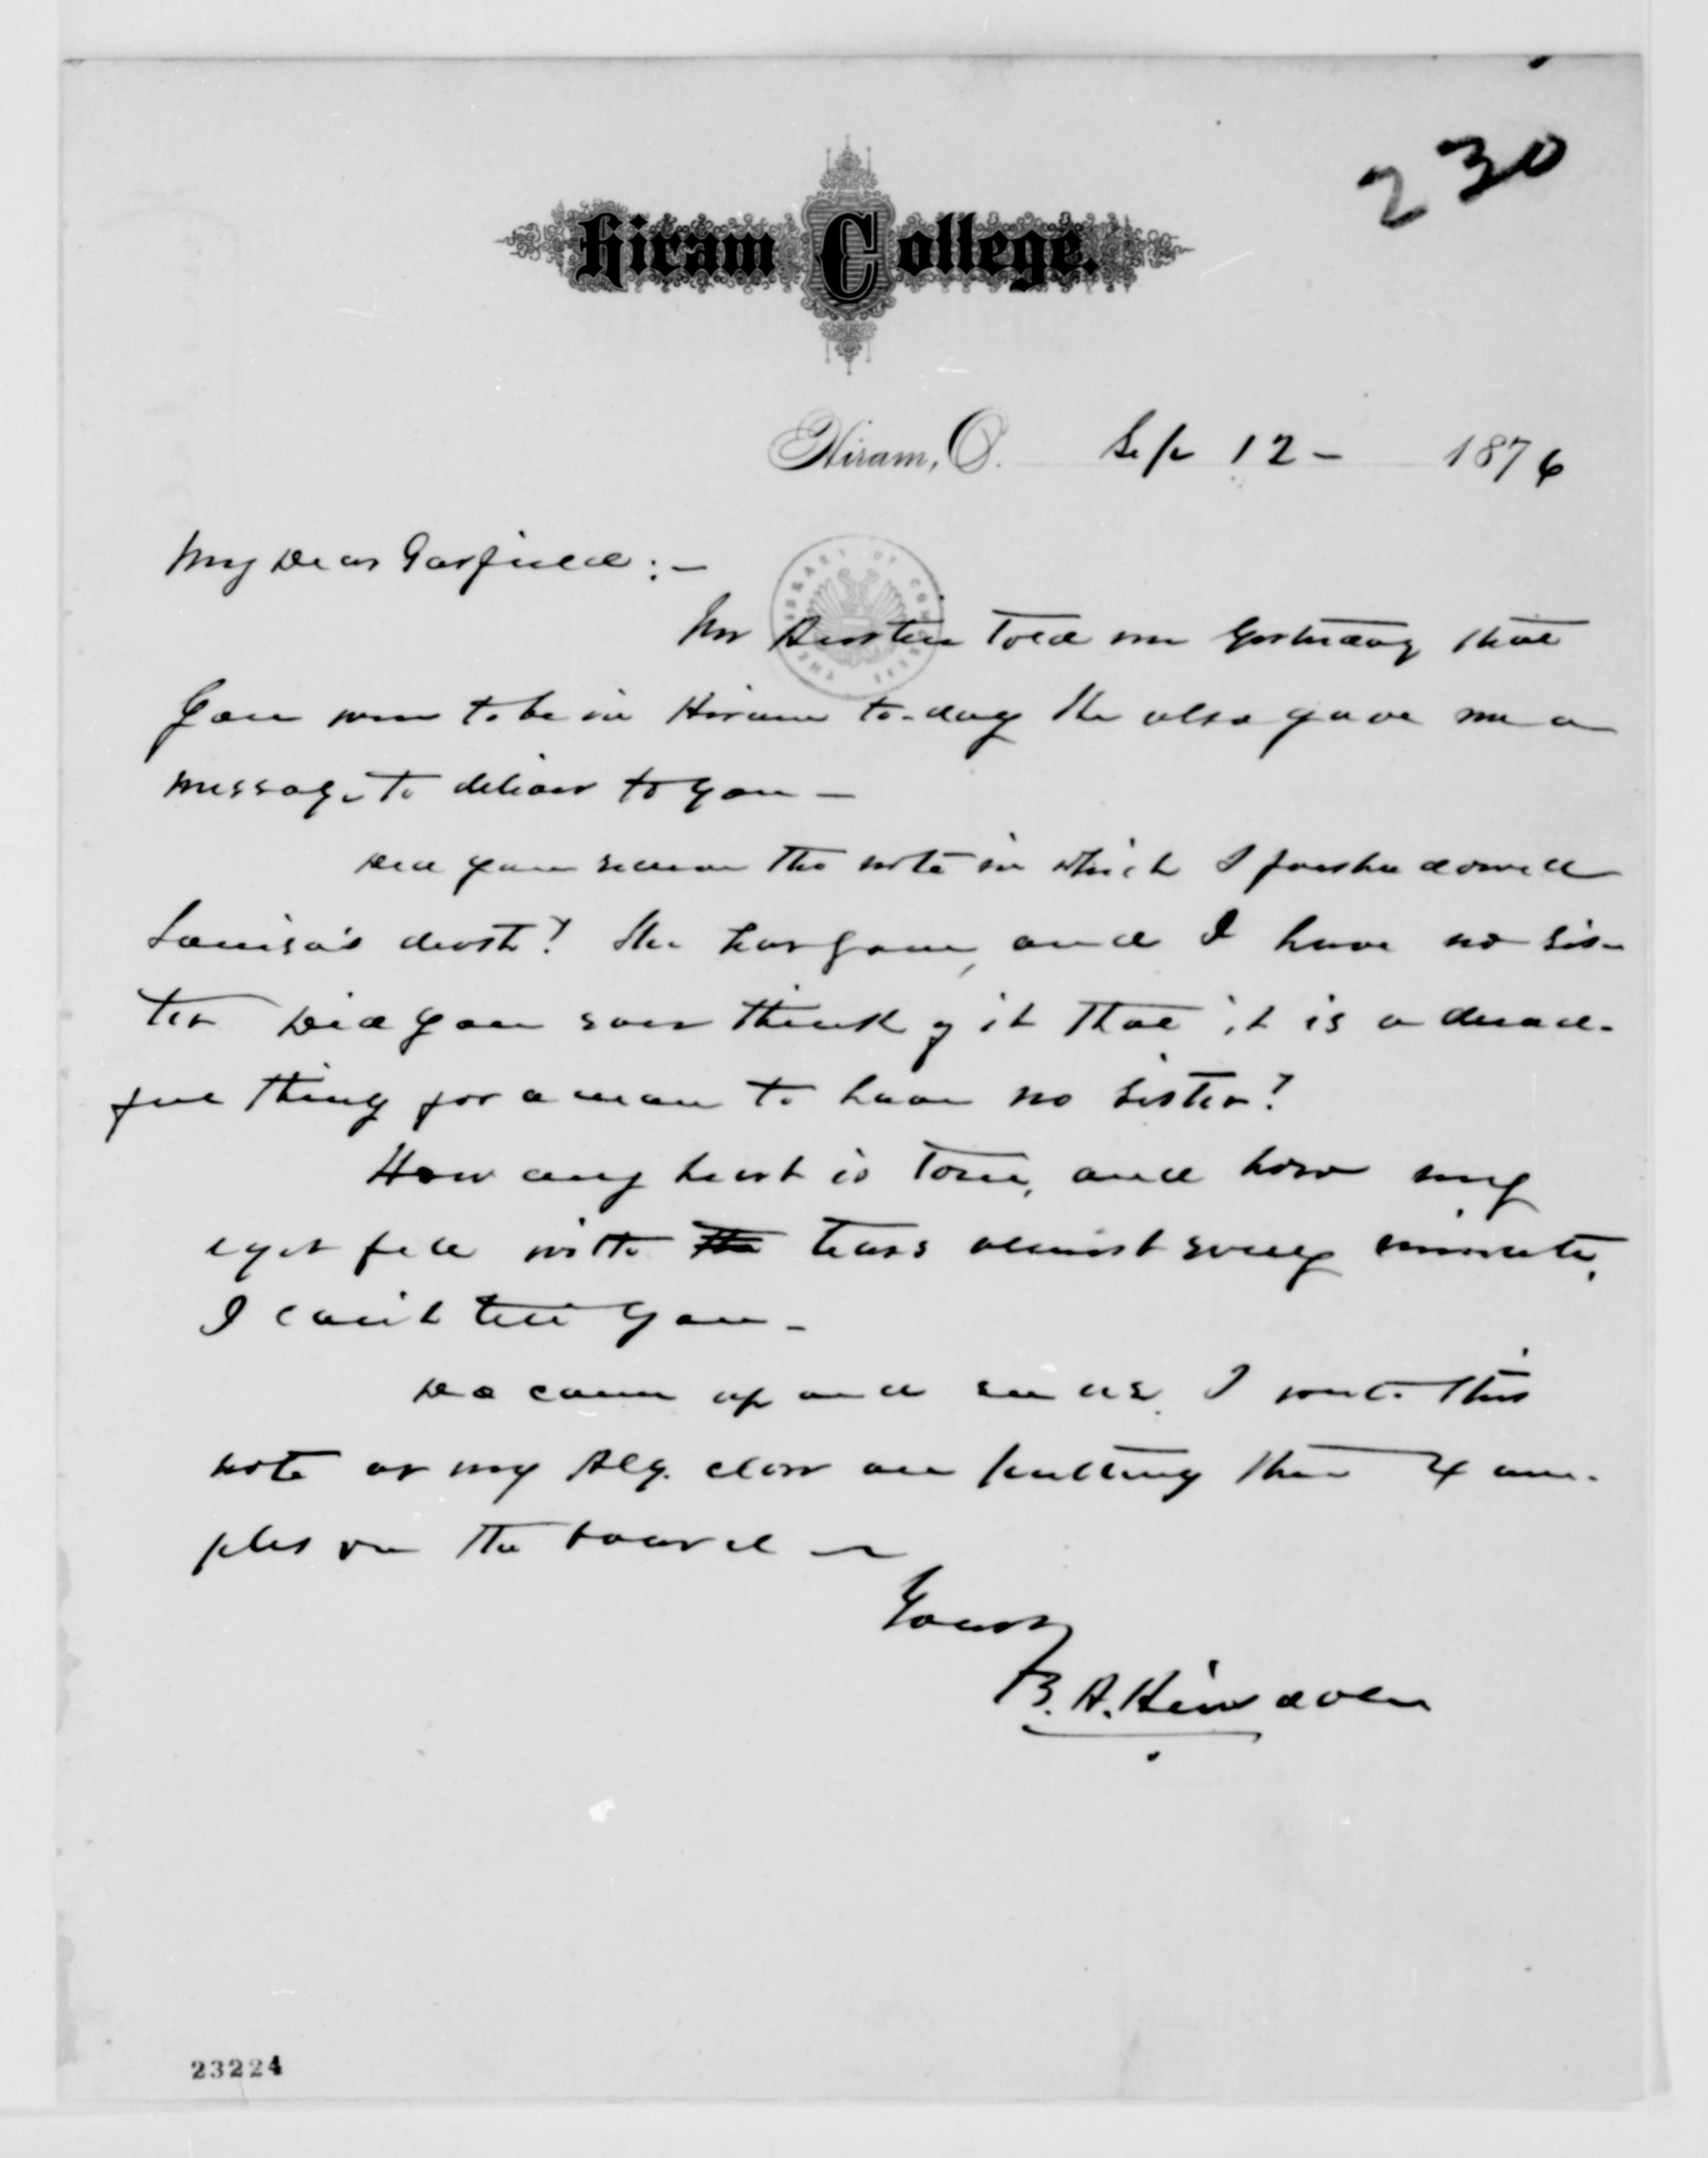 230
Hiram College.
Hiram, O. Sep 12 - 1876
My Dear Garfield:-
Mr Austin told me yesterday that
you were to be in Hiram to-day He also gave me a
message to deliver to you -
Did you receive the note in which I foreshadowed
Louisa's death? She has gone, and I have no sis-
ter Did you ever think of it that it is a dread-
ful thing for a man to have no sister?
How my heart is torn, and how my
eyes fill with the tears almost every minute,
I can't tell you -
Do come up and see us. I write this
note as my Alg. class are putting their Exam-
ples on the board -
Yours
B. A. Hinsdale
THE LIBRARY OF CONGRESS
23224